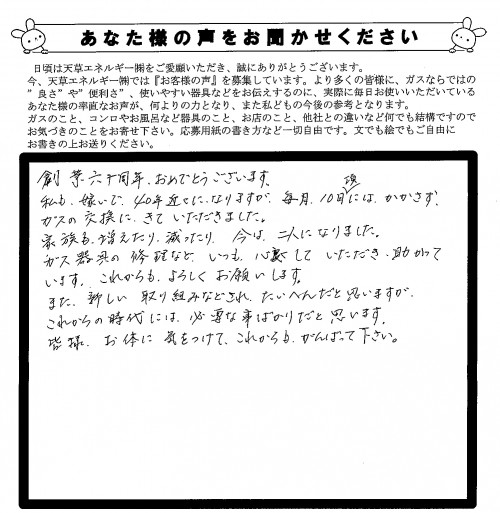 あなた様の声をお聞かせください
日頃は天草エネルギー㈱をご愛顧いただき、誠にありがとうございます。
今、天草エネルギー㈱では『お客様の声』を募集しています。より多くの皆様に、ガスならではの
”良さ”や”便利さ”、使いやすい器具などをお伝えするのに、実際に毎日お使いいただいている
あなた様の率直なお声が、何よりの力となり、また私どもの今後の参考となります。
ガスのこと、コンロやお風呂など器具のこと、お店のこと、他社との違いなど何でも結構ですので
お気づきのことをお寄せ下さい。応募用紙の書き方など一切自由です。文でも絵でもご自由に
お書きの上お送りください。
創業六十周年、おめでとうございます。
私も、嫁いで、40年近くになりますが、毎月、10日頃には、かかさず、
ガスの交換に、きていただきました。
家族も、増えたり、減ったり、今は、二人になりました。
ガス器具の修理など、いつも、心配していただき、助かって
います。これからも、よろしくお願いします。
また、新しい取り組みなどされ、たいへんだと思いますが、
これからの時代には、必要な事ばかりだと思います。
皆様、お体に気をつけて、これからも、がんばって下さい。